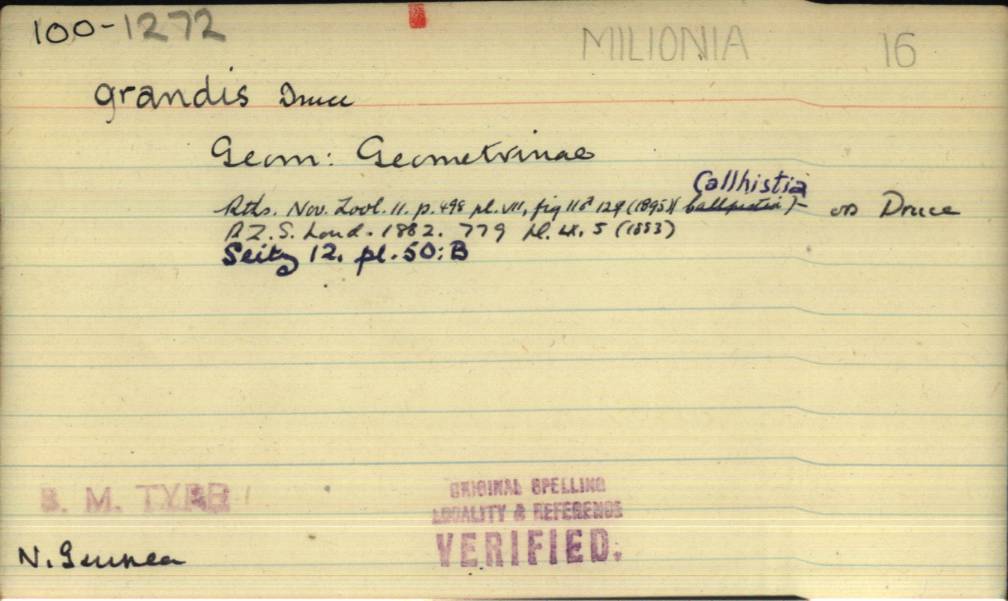 100-1272
MILIONIA 16
grandis Druce
Geom: Geometrinae
Callhistia
Rths. Nov. Zool. 11. p. 498 pl. VII, fig 11♂ 12♀ (1895) as Druce
P.Z.S. Lond. 1882. 779 pl. 5 (1883)
Seitz 12. pl. 50: B
B. M. TYPE
ORIGINAL SPELLING
LOCALITY & REFERENCE
VERIFIED.
N. Guinea